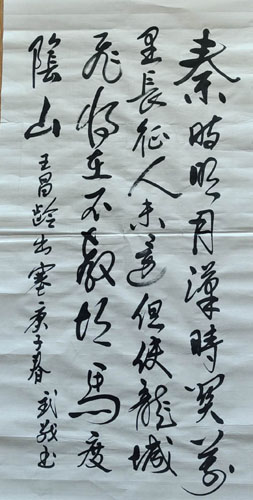 秦時明月漢時關萬
里長征人未還但使龍城
飛將在不教胡馬度
陰山
王昌齡出塞庚子春武敬书